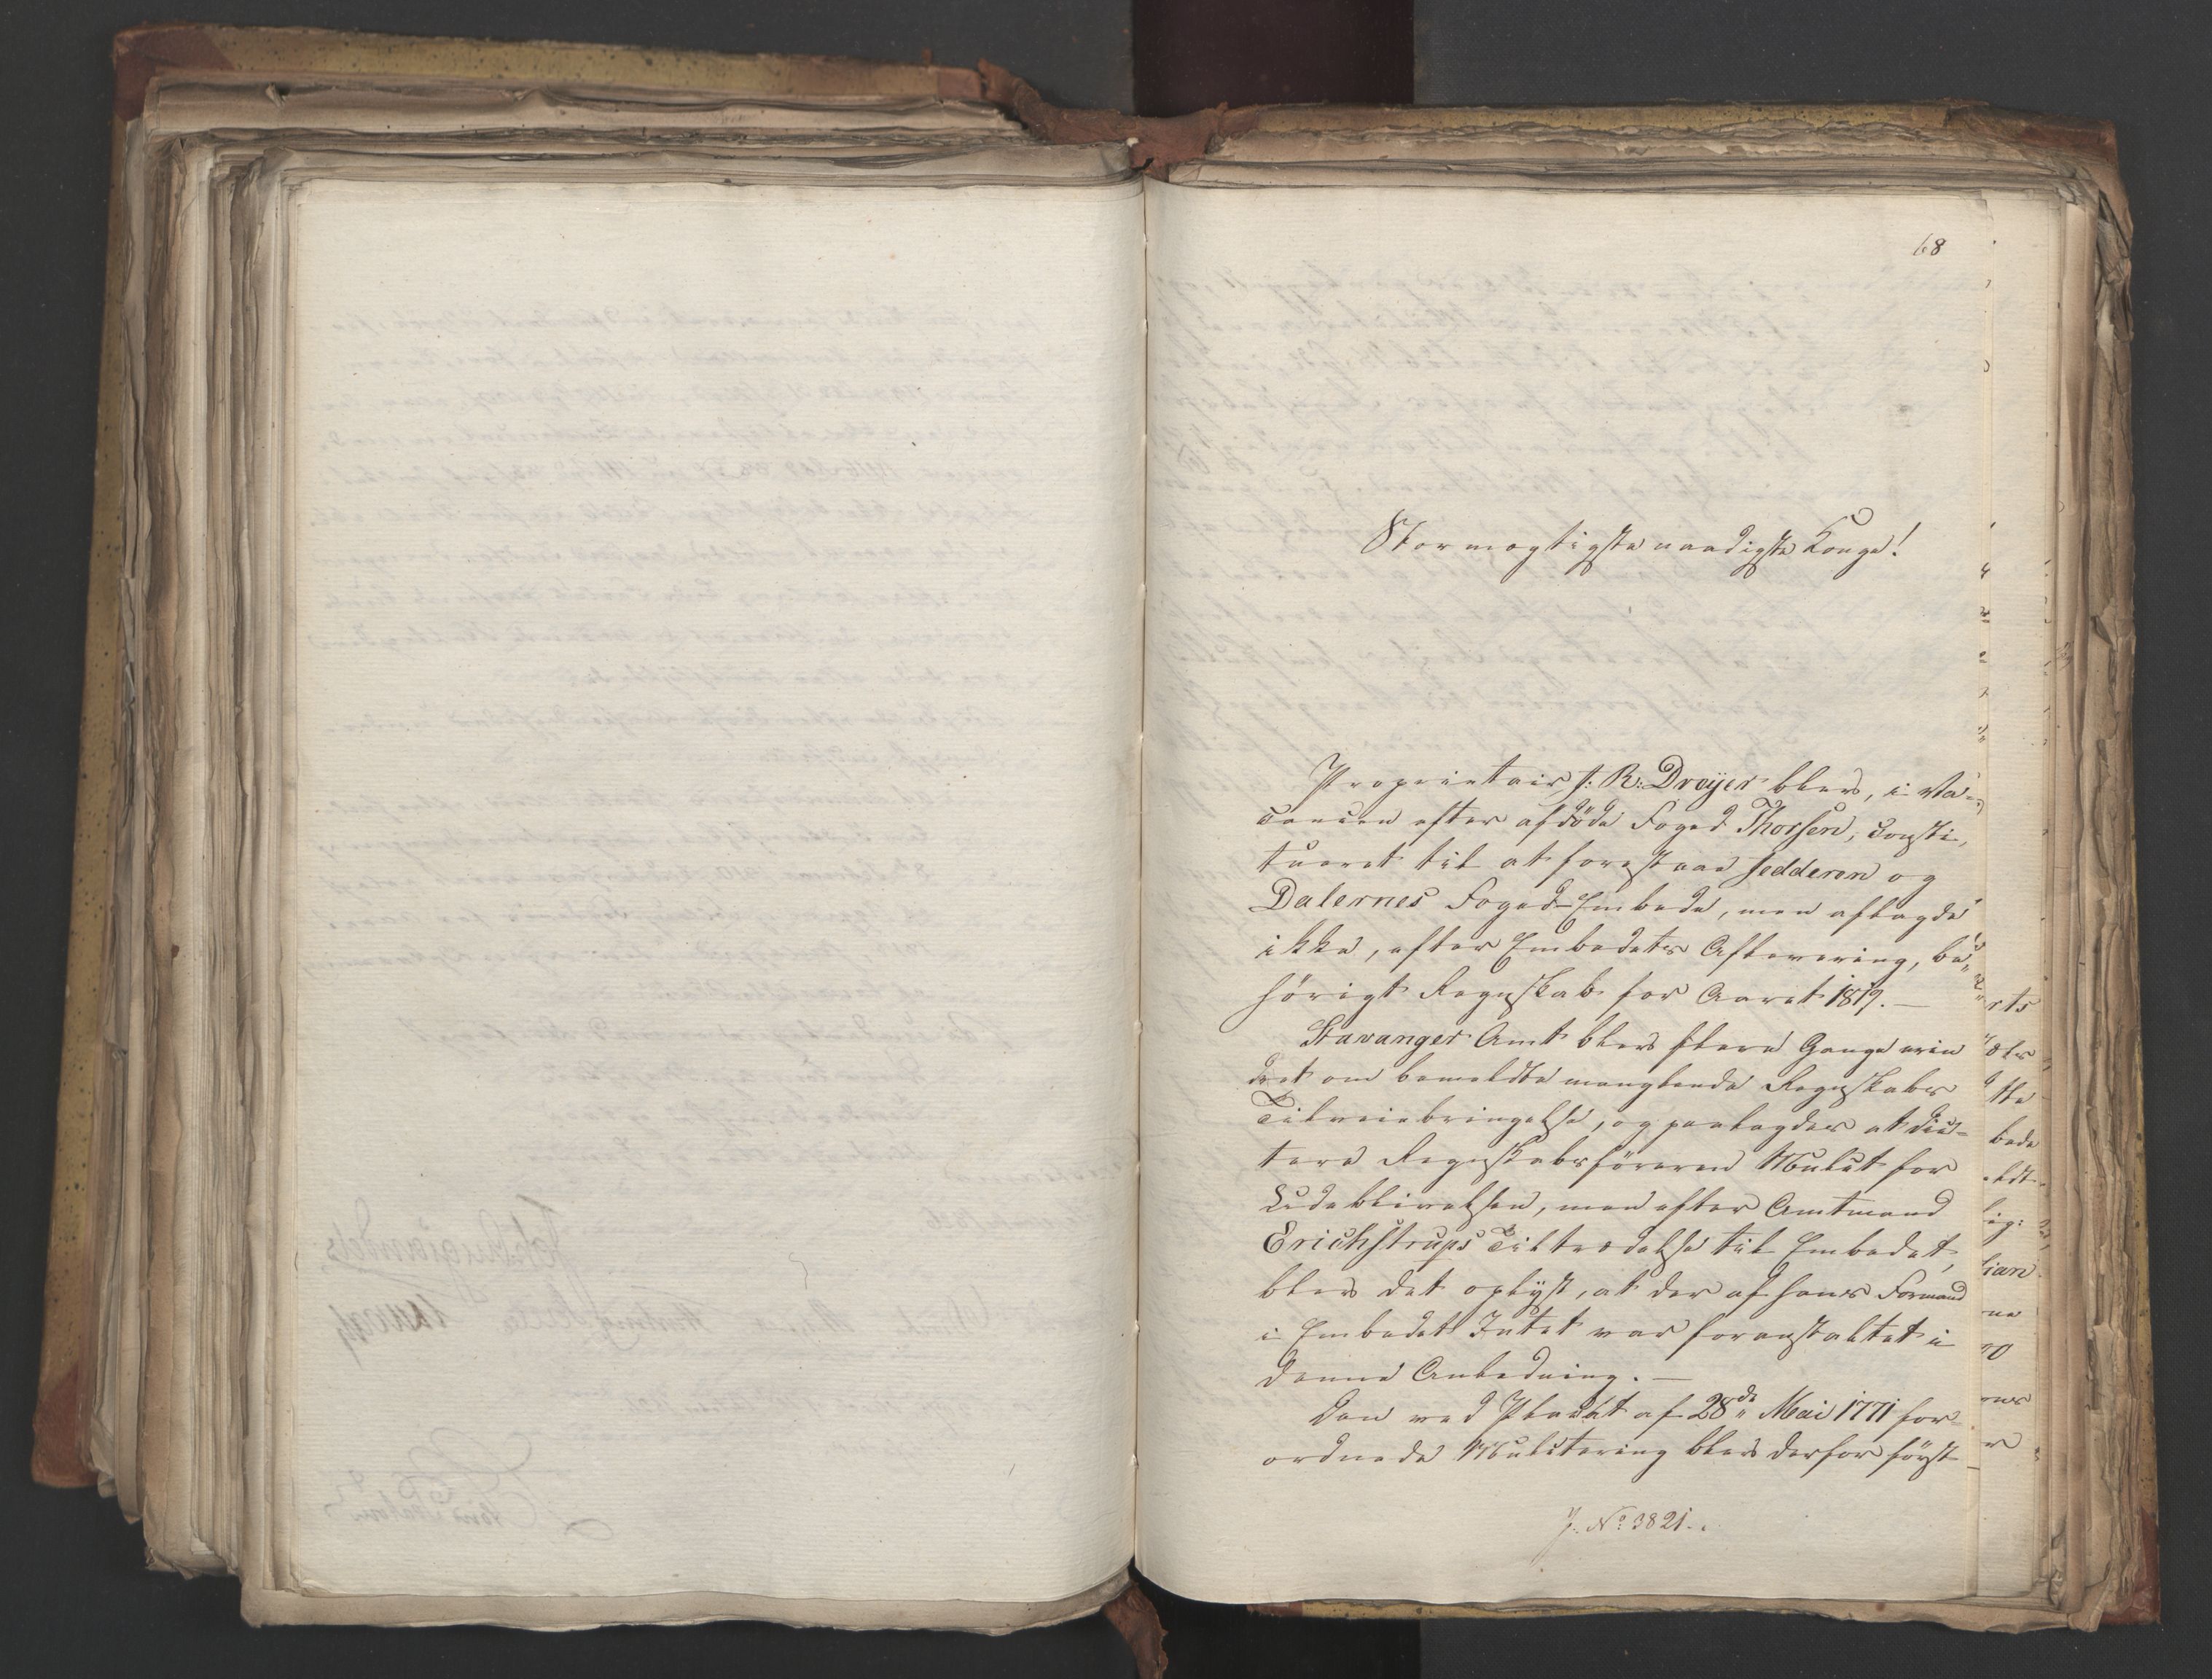 68
Stormægtigste naadigste Konge!
Proprietair J: R: Dreÿer blev, i Va-
cancen efter afdöde Foged Thorsen, consti-
tueret til at forestaae Jedderen og
Dalernes Foged-Embede, men aflagde
ikke, efter Embedets Aflevering, be-
hörigt Regnskab for Aaret 1819. —
Stavanger Amt blev flere Gange erin
dret om bemeldte manglende Regnskabs
Tilveiebringelse, og paalagdes at dic-
tere Regnskabsföreren Mulct for
Udeblivelsen, men efter Amtmand
Erichstrups Tiltrædelse til Embedet,
blev det oplÿst, at der af hans Formand
i Embedet Intet var foranstaltet i
denne Anledning. —
Den ved Placat af 28de Mai 1771 for-
ordnede Mulctering blev derfor först
J: No 3821.